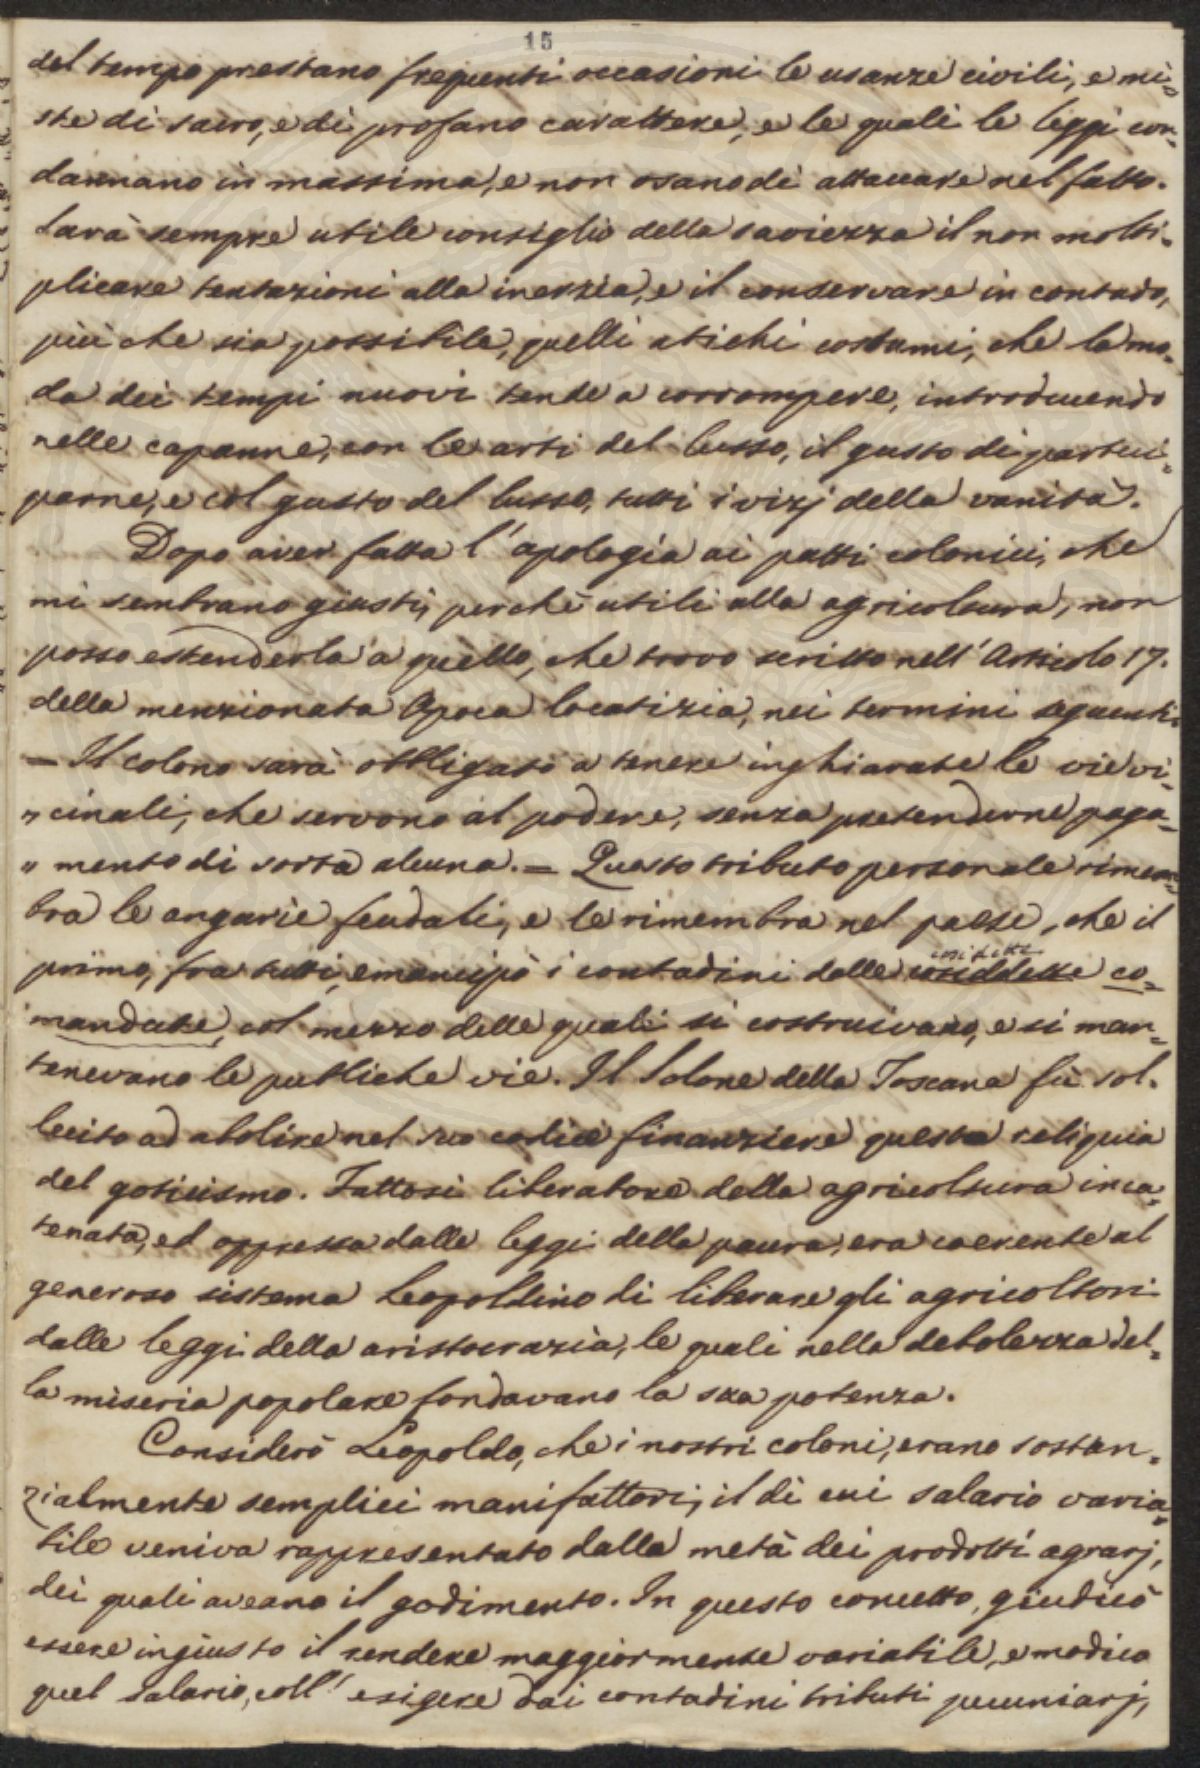 15
del tempo prestano frequenti occasioni le usanze civili, e mi=
ste di sacro, e di profano carattere, e le quali le leggi con=
dannano in massima, e non osano di attaccare nel fatto.
Sarà sempre utile consiglio della saviezza il non molti=
plicare tentazioni alla inerzia, e il conservare in contado,
più che sia possibile, quelli atichi costumi, che la mo=
da dei tempi nuovi tende a corrompere, introducendo
nelle capanne, con le arti del lusso, il gusto di parteci=
parne, e col gusto del lusso, tutti i vizj della vanità.
Dopo aver fatta l'apologia ai patti colonici, che
mi sembrano giusti, perchè utili alla agricoltura, non
posso estenderla a quello, che trovo scritto nell'Articolo 17.
della menzionata Apoca locatizia, nei termini seguenti.
= Il colono sarà obbligato a tenere inghiarate le vie vi=
" cinali, che servono al podere, senza pretenderne paga=
" mento di sorta alcuna. = Questo tributo personale rimem=
bra le angarie feudali, e le rimembra nel paese, che il
primo, fra tutti, emancipò i contadini dalle cosiddette così dette co=
mandate, col mezzo delle quali si costruivano, e si man=
tenevano le pubbliche vie. Il Solone della Toscana fù sol=
lecito ad abolire nel suo codice finanziere questa reliquia
del goticismo. Fattosi liberatore della agricoltura inca=
tenata, ed oppressa dalle leggi della paura, era coerente al
generoso sistema Leopoldino di liberare gli agricoltori
dalle leggi della aristocrazia, le quali nella debolezza del=
la miseria popolare fondavano la sua potenza.
Considerò Leopoldo, che i nostri coloni, erano sostan=
zialmente semplici manifattori, il di cui salario varia=
bile veniva rappresentato dalla metà dei prodotti agrarj,
dei quali aveano il godimento. In questo concetto, giudicò
essere ingiusto il rendere maggiormente variabile, e modico
quel salario, coll'esigere dai contadini tributi pecuniarj,